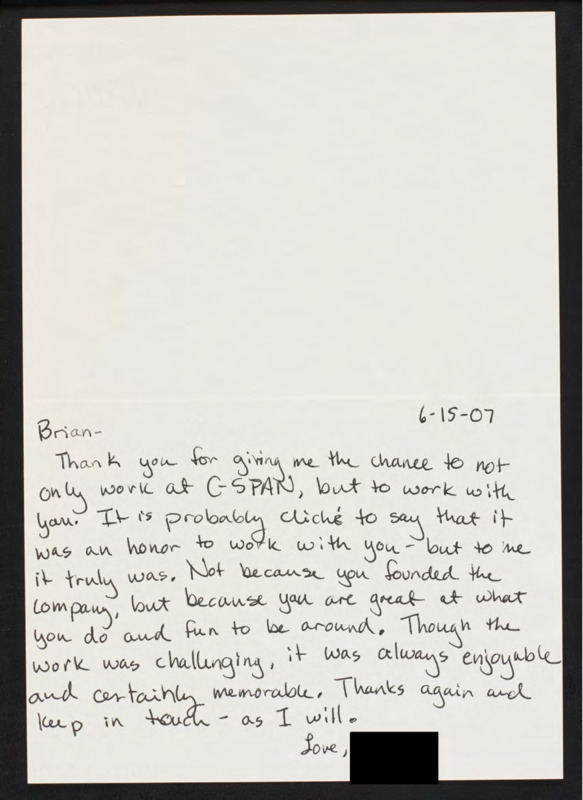 6-15-07
Brian-
Thank you for giving me the chance to not
only work at C-SPAN, but to work with
you. It is probably cliché to say that it
was an honor to work with you - but to me
it truly was. Not because you founded the
company, but because you are great at what
you do and fun to be around. Though the
work was challenging, it was always enjoyable
and certainly memorable. Thanks again and
keep in touch - as I will.
Love,